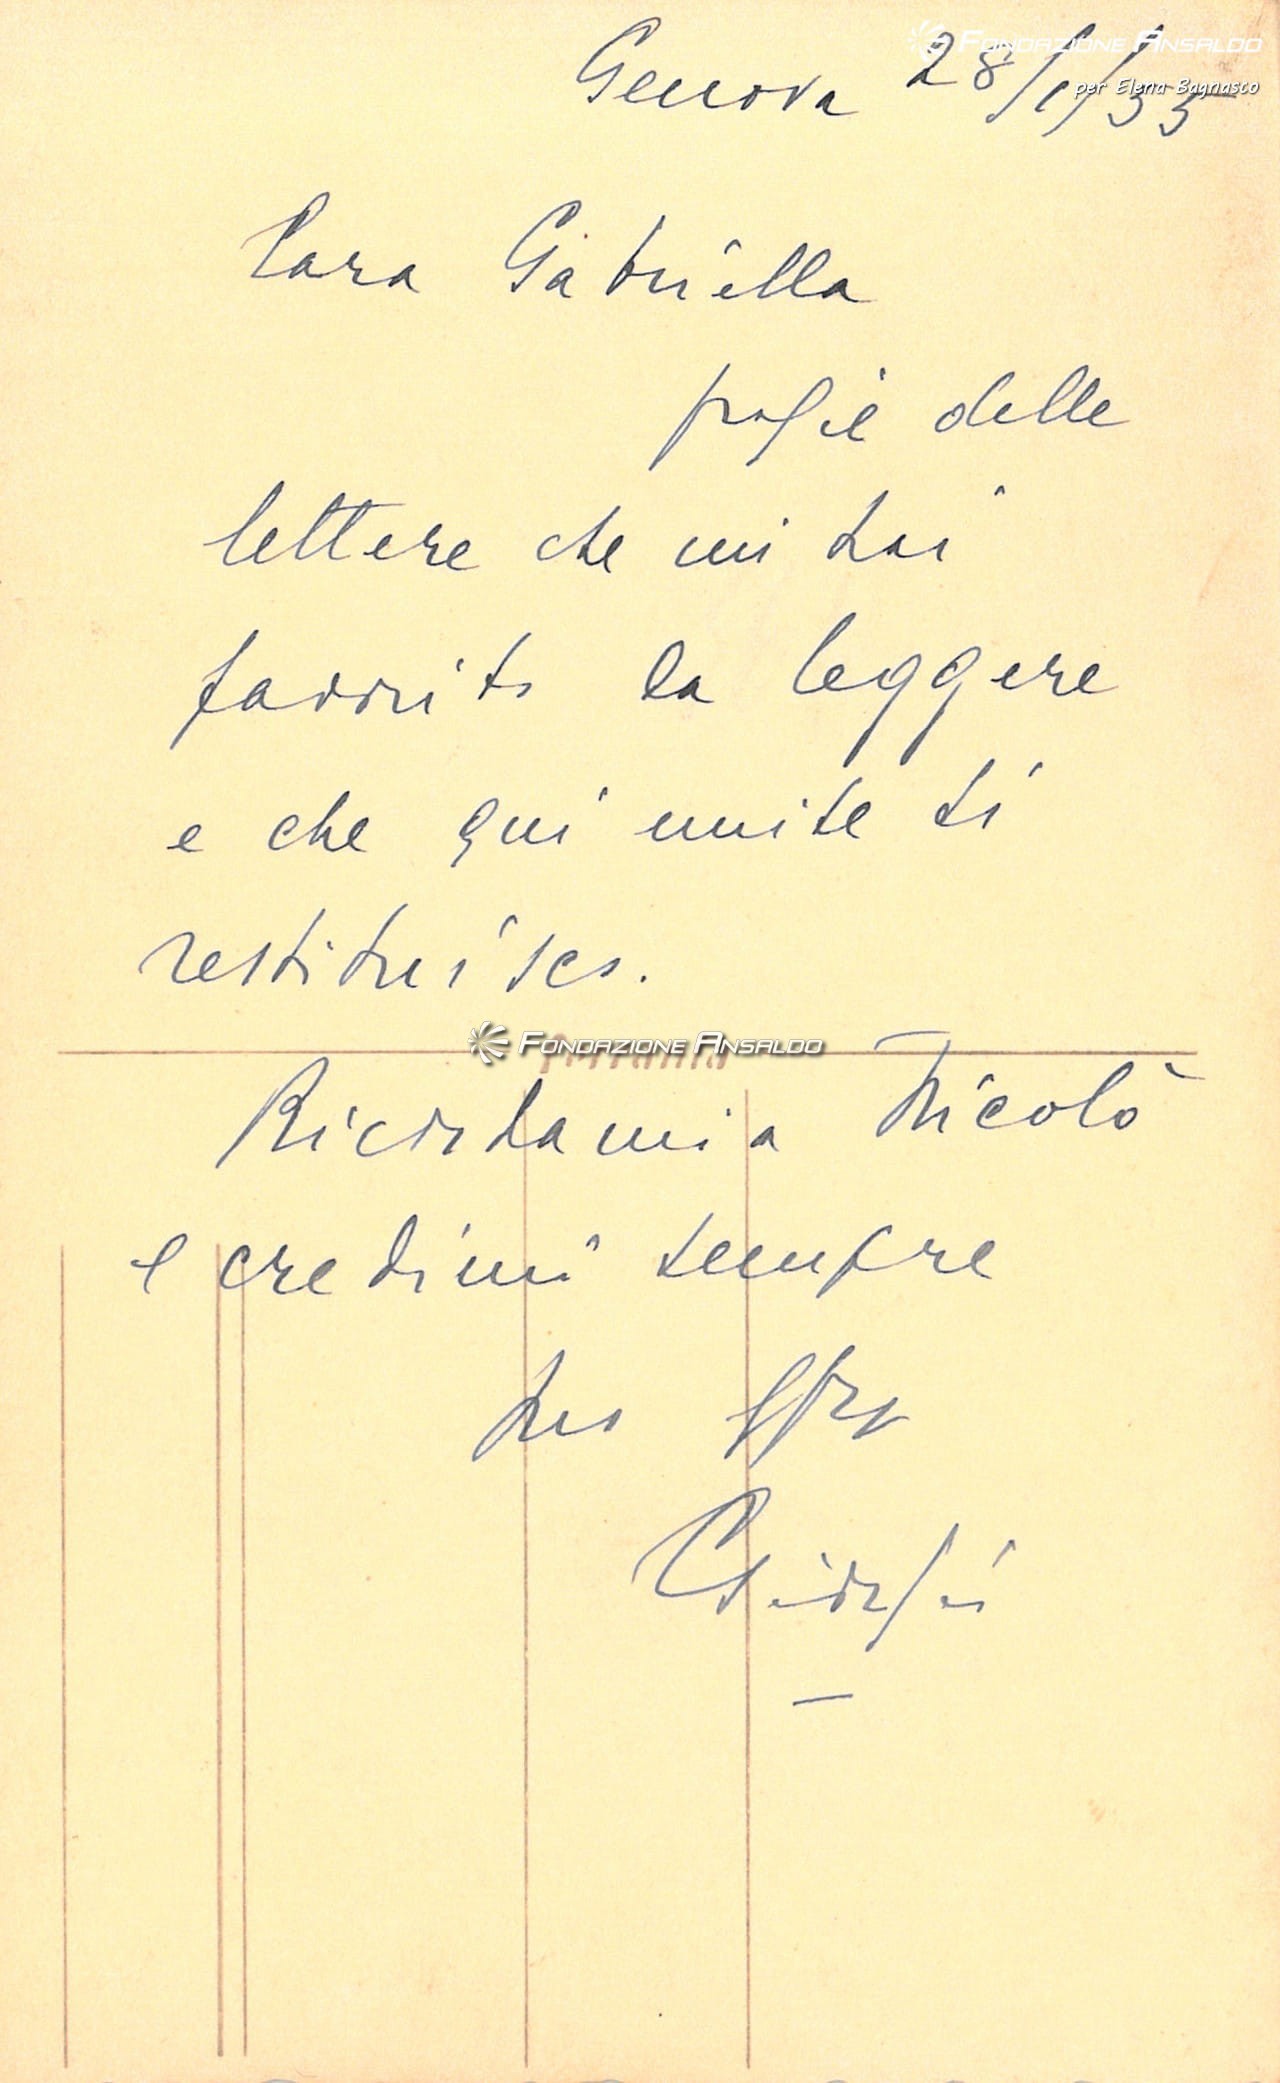 Fondazione Ansaldo
per Elena Bagnasco
Genova 28/1/55
Cara Gabriella
grazie delle
lettere che mi hai
favorito da leggere
e che qui unite ti
restituisco.
Fondazione Ansaldo
Ferrania
Ricordami a Nicolò
e credimi sempre
tuo
Giorgio